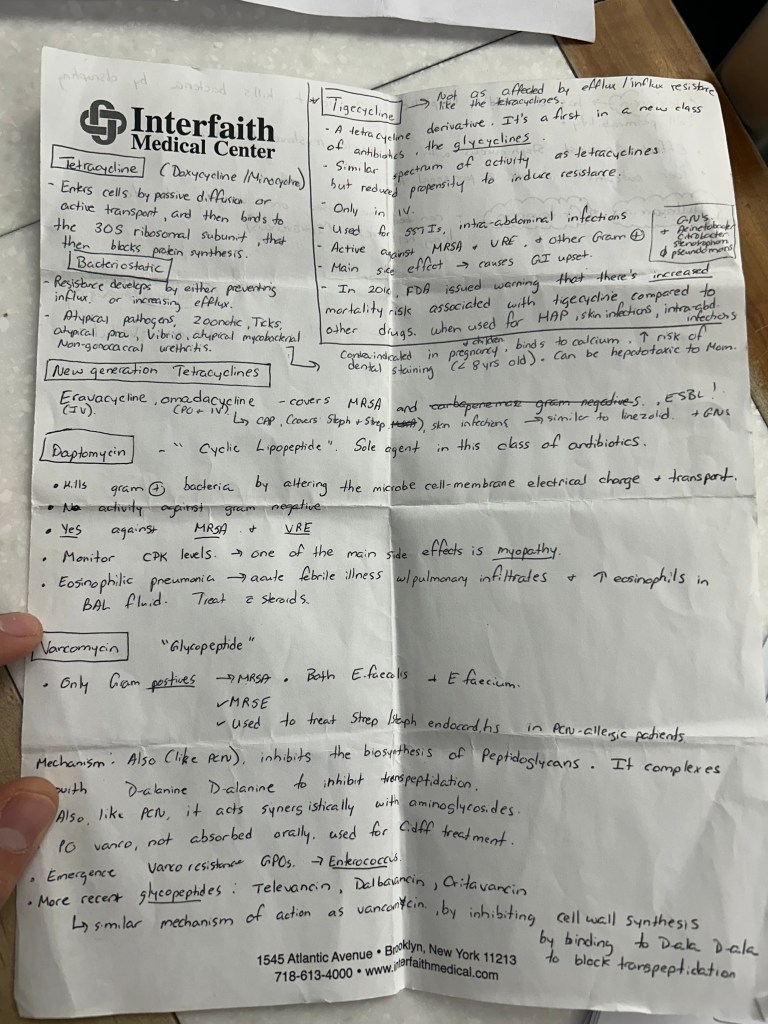 Interfaith
Medical Center
Tetracycline (Doxycycline/Minocycline)
- Enters cells by passive diffusion or
active transport, and then binds to
the 30S ribosomal subunit, that
then blocks protein synthesis.
Bacteriostatic
- Resistance develops by either preventing
influx, or increasing efflux.
- Atypical pathogens, Zoonotic, Ticks,
atypical pna, Vibrio, atypical mycobacterial
Non-gonococcal urethritis.
Tigecycline → Not as affected by efflux/influx resistance
like the tetracyclines.
- A tetracycline derivative. It's a first in a new class
of antibiotics, the glycyclines.
- Similar spectrum of activity as tetracyclines
but reduced propensity to induce resistance.
- Only in IV.
- Used for SSTIs, intra-abdominal infections
- Active against MRSA + VRE. + other Gram ⊕
- Main side effect → causes GI upset.
- In 2010, FDA issued warning that there's increased
mortality risk associated with tigecycline compared to
other drugs. when used for HAP, skin infections, intraabd.
infections
GN's
+ Acinetobacter
Citrobacter
Stenotrophom
∅ pseudomonas
↳ Contraindicated in pregnancy, binds to calcium. ↑ risk of
children
dental staining (< 8 yrs old). Can be hepatotoxic to Mom.
New generation Tetracyclines
Eravacycline, omadacycline - covers MRSA and carbapenemase gram negatives, ESBL!
(IV). (PO + IV) ↳ CAP, (covers Staph + Strep MRSA), skin infections → similar to linezolid. + GNs
Daptomycin - "Cyclic Lipopeptide". Sole agent in this class of antibiotics.
• Kills gram ⊕ bacteria by altering the microbe cell-membrane electrical charge + transport.
• No activity against gram negative
• Yes against MRSA + VRE
• Monitor CPK levels. → one of the main side effects is myopathy.
• Eosinophilic pneumonia → acute febrile illness w/pulmonary infiltrates + ↑ eosinophils in
BAL fluid. Treat c̄ steroids.
Vancomycin "Glycopeptide"
• Only Gram postives → MRSA. Both E.faecalis + E faecium.
✓ MRSE
✓ Used to treat Strep/Staph endocarditis in PCN-allergic patients
Mechanism: Also (like PCN), inhibits the biosynthesis of Peptidoglycans. It complexes
with D-alanine D-alanine to inhibit transpeptidation.
Also, like PCN, it acts synergistically with aminoglycosides.
PO vanco, not absorbed orally. used for Cdiff treatment.
• Emergence Vanco resistance GPOs. → Enterococcus.
• More recent glycopeptides: Televancin, Dalbavancin, Oritavancin
↳ similar mechanism of action as vancomycin, by inhibiting cell wall synthesis
by binding to D-ala D-ala
to block transpeptidation
1545 Atlantic Avenue • Brooklyn, New York 11213
718-613-4000 • www.interfaithmedical.com